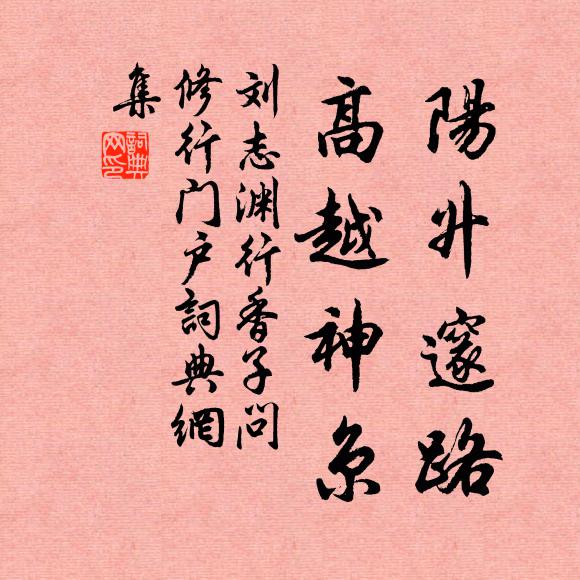 陽升邃路
高越神京
刘志渊行香子问
修行门户詞典網
集
詞典
网印